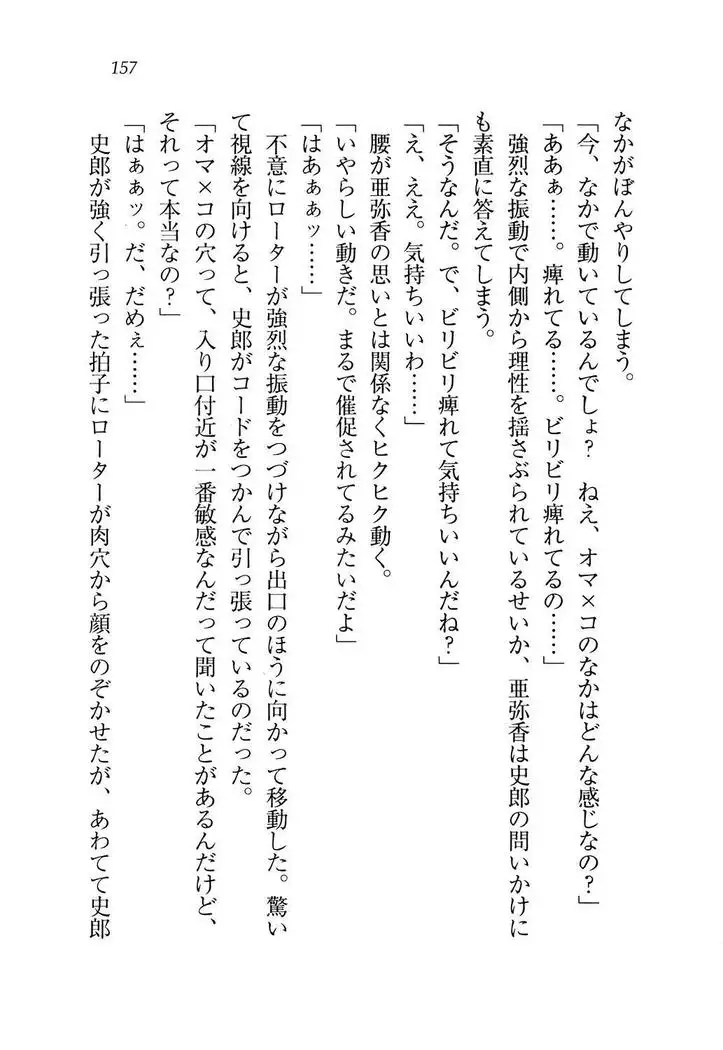 157
なかがぼんやりしてしまう。
「今、なかで動いているんでしょ？　ねえ、オマ×コのなかはどんな感じなの？」
「ああぁ……。痺れてる……。ビリビリ痺れてるの……」
強烈な振動で内側から理性を揺さぶられているせいか、亜弥香は史郎の問いかけに
も素直に答えてしまう。
「そうなんだ。で、ビリビリ痺れて気持ちいいんだね？」
「え、ええ。気持ちいいわ……」
腰が亜弥香の思いとは関係なくヒクヒク動く。
「いやらしい動きだ。まるで催促されてるみたいだよ」
「はあぁぁッ……」
不意にローターが強烈な振動をつづけながら出口のほうに向かって移動した。驚い
て視線を向けると、史郎がコードをつかんで引っ張っているのだった。
「オマ×コの穴って、入り口付近が一番敏感なんだって聞いたことがあるんだけど、
それって本当なの？」
「はぁぁッ。だ、だめぇ……」
史郎が強く引っ張った拍子にローターが肉穴から顔をのぞかせたが、あわてて史郎